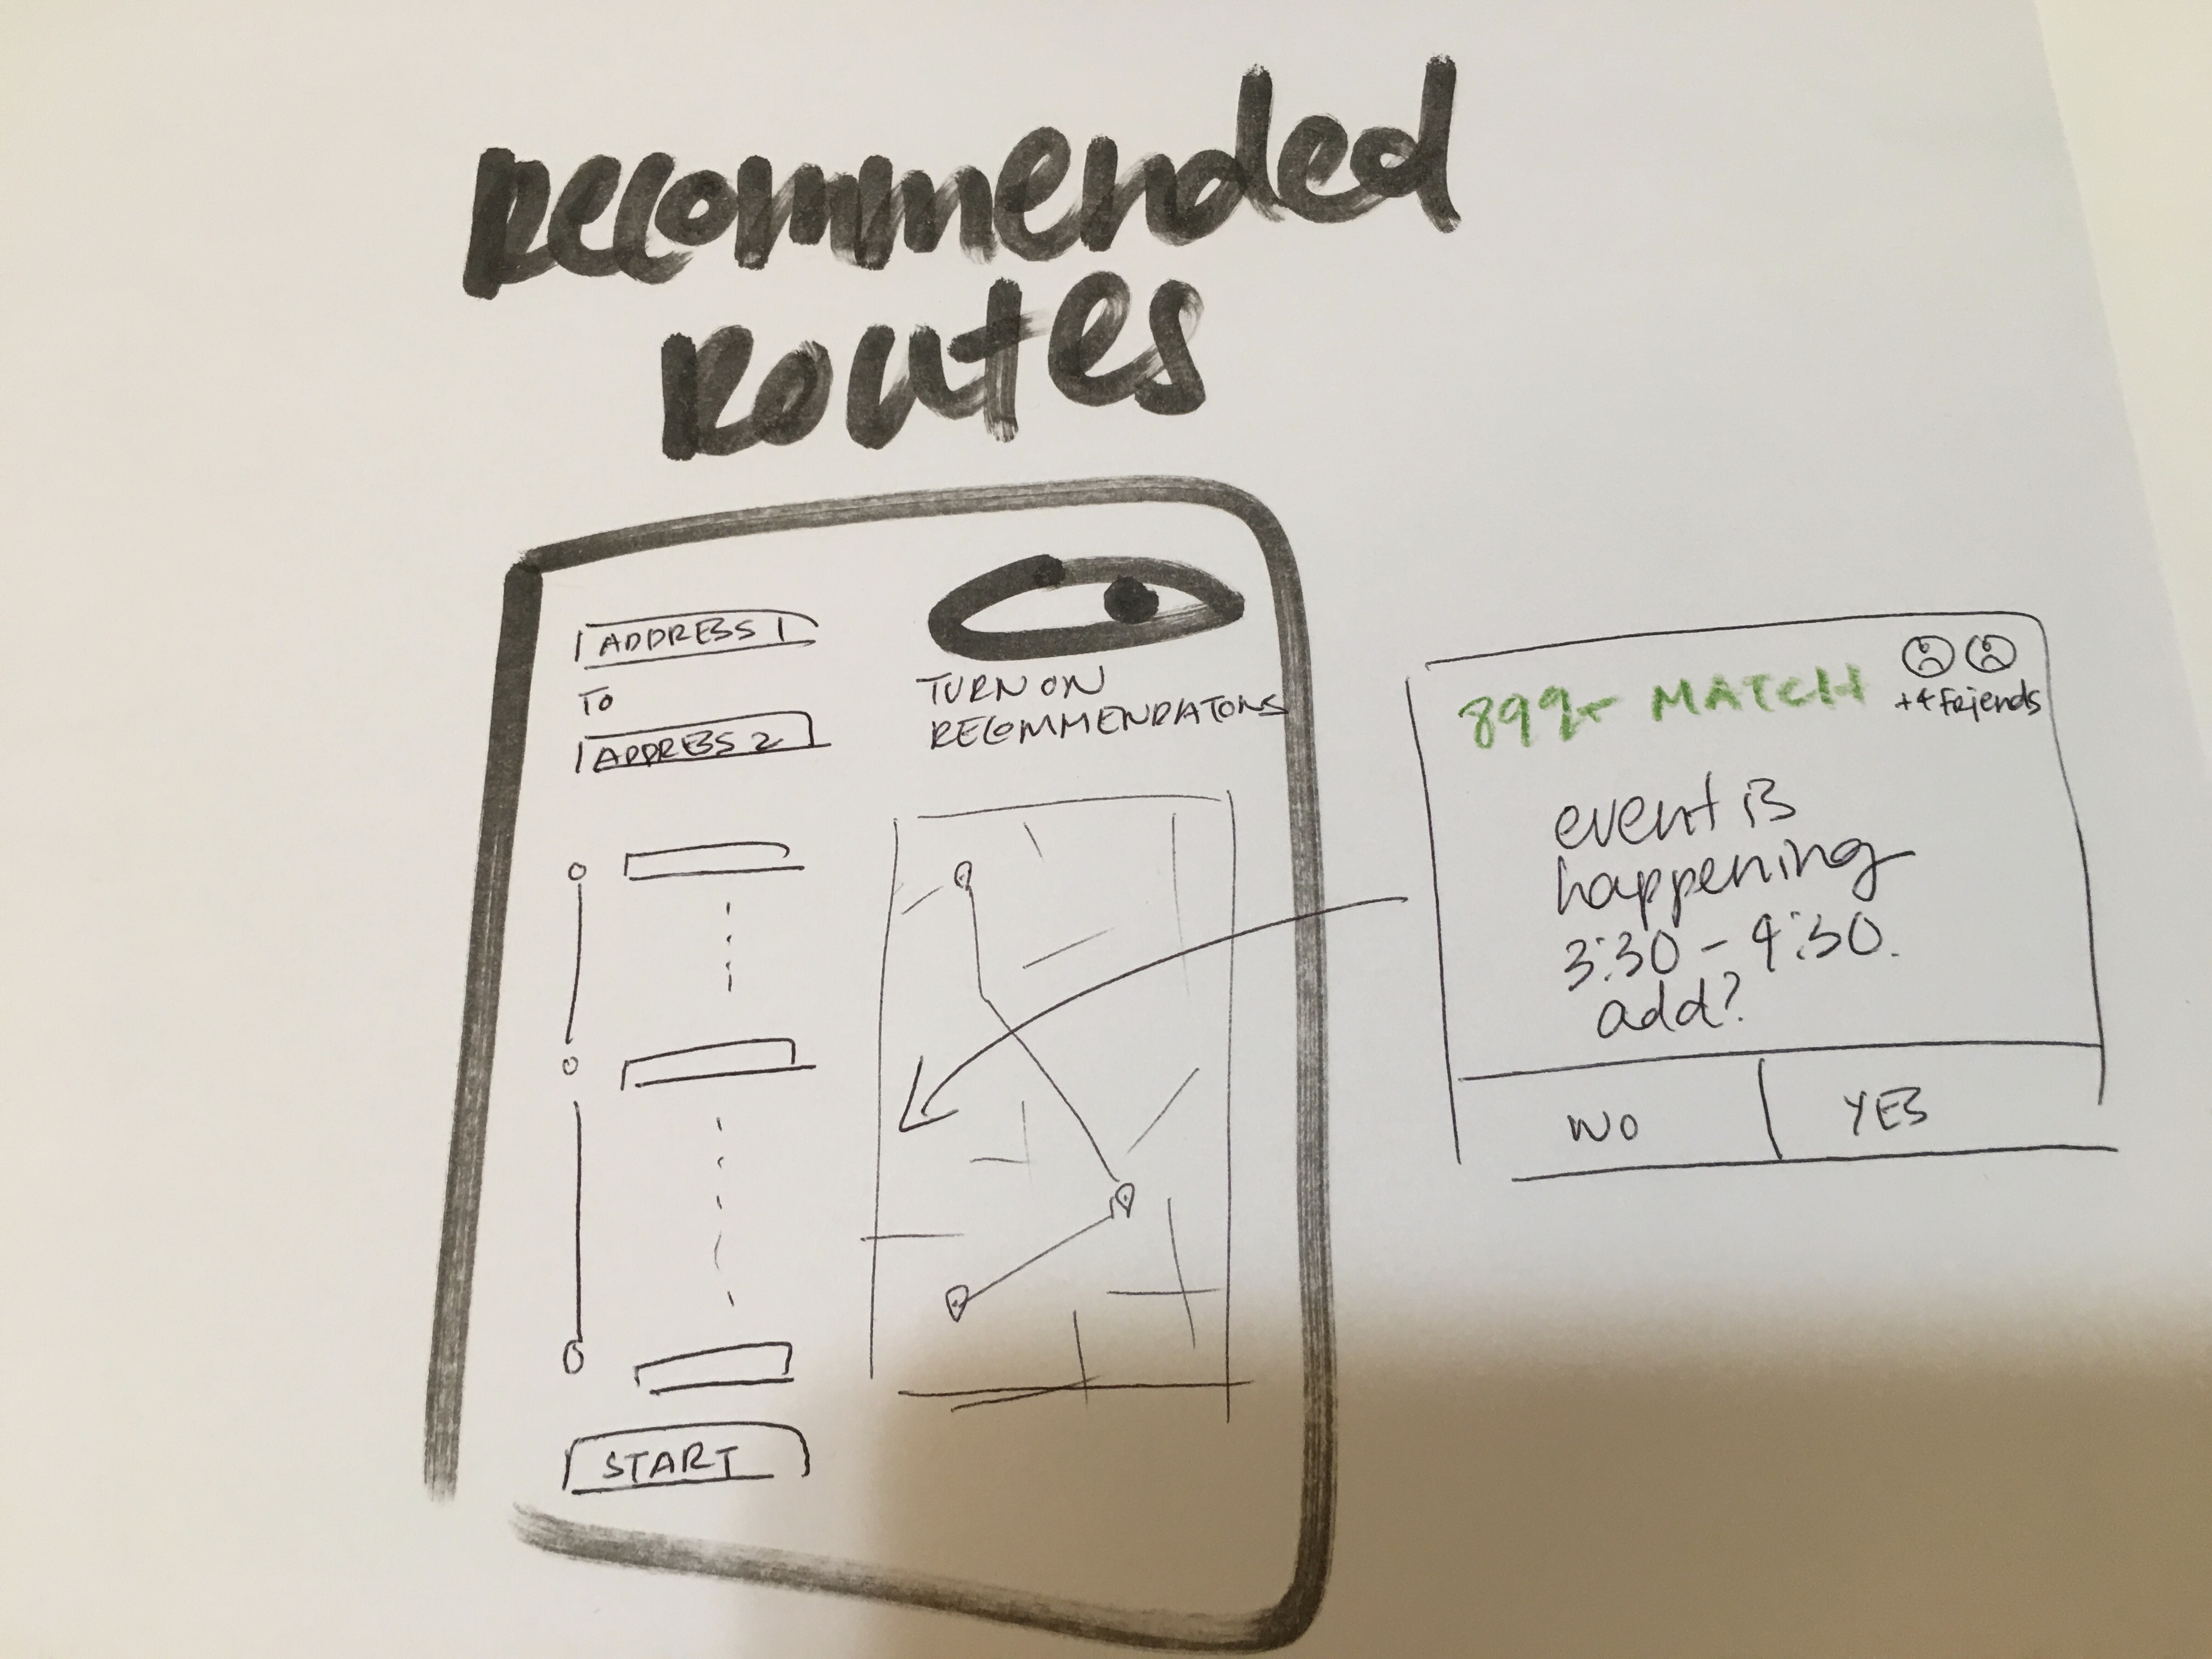 Recommended
Routes
ADDRESS 1
TO
ADDRESS 2
TURN ON
RECOMMENDRATONS
START
MATCH
+4 Friends
event is
happening
3:30 - 4:30.
add?
NO
YES